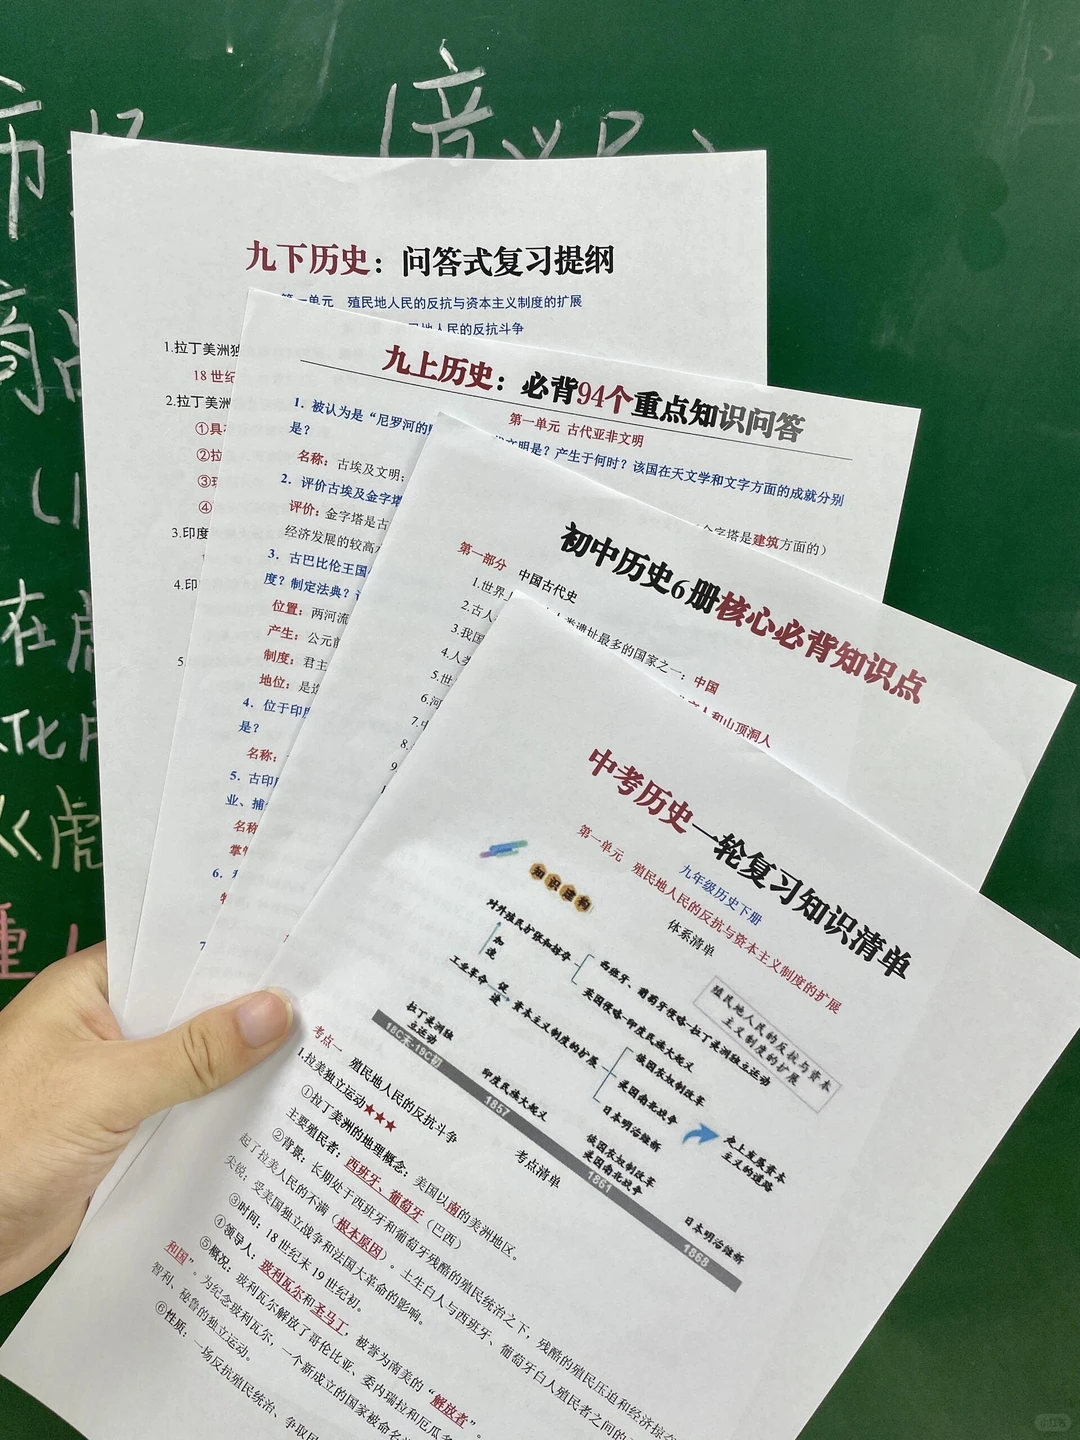 市场
倍
商品
在虎
化
《虎
重
九下历史：问答式复习提纲
第一单元 殖民地人民的反抗与资本主义制度的扩展
民地人民的反抗斗争
1.拉丁美洲独
18世纪
2.拉丁美洲
①具
②拉
③
④
3.印度
4.印
5
九上历史：必背94个重点知识问答
第一单元 古代亚非文明
1. 被认为是“尼罗河的
文明是？产生于何时？该国在天文学和文字方面的成就分别
是？
名称：古埃及文明；
2. 评价古埃及金字塔
评价：金字塔是古
金字塔是建筑方面的）
经济发展的较高水
3. 古巴比伦王国
度？制定法典？
位置：两河流
产生：公元前
制度：君主
地位：是
4. 位于印度
是？
名称：
5. 古印度
业、捕
名称
掌
6.
7
初中历史6册核心必背知识点
第一部分 中国古代史
1.世界上
人类遗址最多的国家之一：中国
2.古人
人和山顶洞人
3.我国
4.人类
5.世
6.河
7.
8.
9
中考历史一轮复习知识清单
九年级历史下册
第一单元 殖民地人民的反抗与资本主义制度的扩展
体系清单
知识结构
殖民地人民的反抗与资本
主义制度的扩展
对外殖民扩张和掠夺
西班牙、葡萄牙侵略-拉丁美洲独立运动
英国侵略-印度民族大起义
加速
工业革命
促进
资本主义制度的扩展
俄国农奴制改革
美国南北战争
日本明治维新
走上发展资本
主义的道路
拉丁美洲独
立运动
18C末-19C初
印度民族大起义
1857
俄国农奴制改革
美国南北战争
1861
日本明治维新
1868
考点清单
考点一 殖民地人民的反抗斗争
1.拉美独立运动★★★
①拉丁美洲的地理概念：美国以南的美洲地区。
主要殖民者：西班牙、葡萄牙（巴西）
②背景：长期处于西班牙和葡萄牙残酷的殖民统治之下，残酷的殖民压迫和经济掠夺
起了拉美人民的不满（根本原因）。土生白人与西班牙、葡萄牙白人殖民者之间的
尖锐；受美国独立战争和法国大革命的影响。
③时间：18世纪末19世纪初。
④领导人：玻利瓦尔和圣马丁，被誉为南美的“解放者”。
⑤概况：玻利瓦尔解放了哥伦比亚、委内瑞拉和厄瓜多
和国”。为纪念玻利瓦尔，一个新成立的国家被命名
智利、秘鲁的独立运动。
⑥性质：一场反抗殖民统治、争取民
小红书